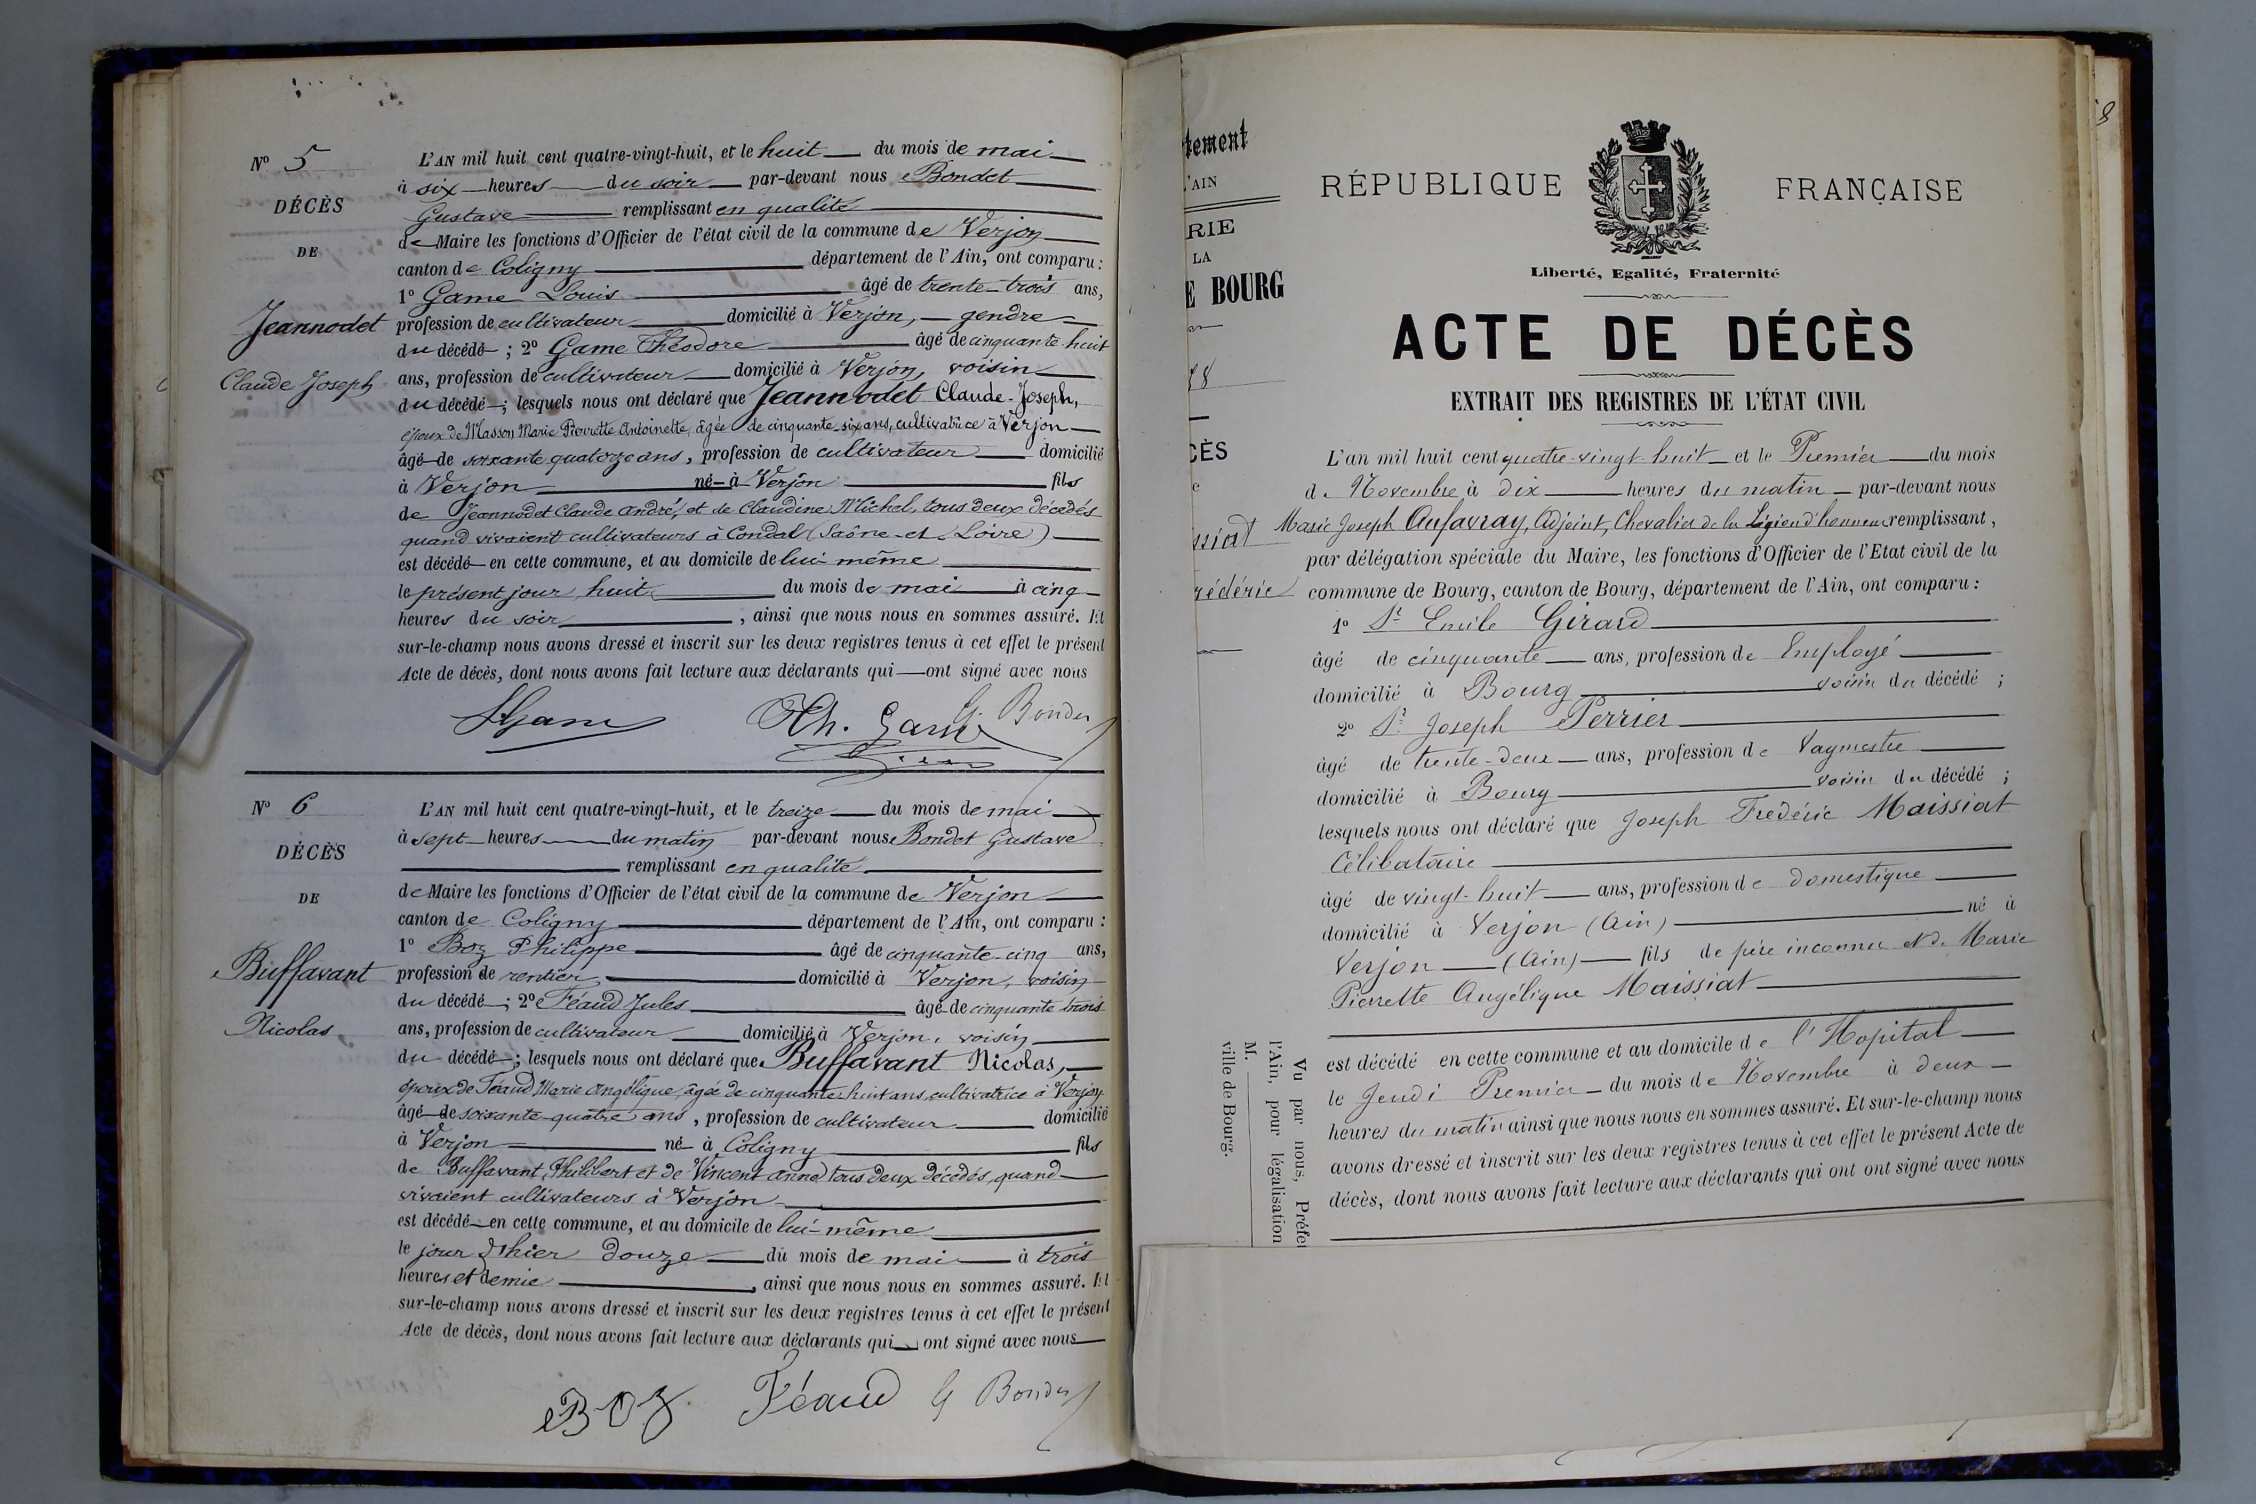 Nº 5
DÉCÈS
DE
Jeannodet
Claude Joseph
L'AN mil huit cent quatre-vingt-huit, et le huit du mois de mai
à six heures du soir par-devant nous Bondet
Gustave remplissant en qualité
de Maire les fonctions d'Officier de l'état civil de la commune de Verjon
canton de Coligny département de l'Ain, ont comparu :
1º Game Louis âgé de trente-trois ans,
profession de cultivateur domicilié à Verjon, gendre
du décédé ; 2º Game Théodore âgé de cinquante huit
ans, profession de cultivateur domicilié à Verjon, voisin
du décédé ; lesquels nous ont déclaré que Jeannodet Claude-Joseph,
époux de Masson Marie Pierrette Antoinette, âgée de cinquante-six ans, cultivatrice à Verjon
âgé de soixante quatorze ans, profession de cultivateur domicilié
à Verjon né à Verjon fils
de Jeannodet Claude André, et de Claudine Michel, tous deux décédés
quand vivaient cultivateurs à Condal (Saône-et-Loire)
est décédé en cette commune, et au domicile de lui-même
le présent jour huit du mois de mai à cinq
heures du soir, ainsi que nous nous en sommes assuré. Et
sur-le-champ nous avons dressé et inscrit sur les deux registres tenus à cet effet le présent
Acte de décès, dont nous avons fait lecture aux déclarants qui ont signé avec nous
LGame Th. Game G. Bondet
Nº 6
DÉCÈS
DE
Buffavant
Nicolas
L'AN mil huit cent quatre-vingt-huit, et le treize du mois de mai
à sept heures du matin par-devant nous Bondet Gustave
remplissant en qualité
de Maire les fonctions d'Officier de l'état civil de la commune de Verjon
canton de Coligny département de l'Ain, ont comparu :
1º Boz Philippe âgé de cinquante-cinq ans,
profession de rentier domicilié à Verjon, voisin
du décédé ; 2º Féaud Jules âgé de cinquante trois
ans, profession de cultivateur domicilié à Verjon, voisin
du décédé ; lesquels nous ont déclaré que Buffavant Nicolas,
époux de Féaud Marie Angélique, âgée de cinquante huit ans, cultivatrice à Verjon
âgé de soixante-quatre ans, profession de cultivateur domicilié
à Verjon né à Coligny fils
de Buffavant Philibert et de Vincent Anne tous deux décédés, quand
vivaient cultivateurs à Verjon
est décédé en cette commune, et au domicile de lui-même
le jour d'hier douze du mois de mai à trois
heures et demie, ainsi que nous nous en sommes assuré. Et
sur-le-champ nous avons dressé et inscrit sur les deux registres tenus à cet effet le présent
Acte de décès, dont nous avons fait lecture aux déclarants qui ont signé avec nous
BOZ Féaud G Bondet
tement
'AIN
RIE
LA
E BOURG
88
CÈS
e
ssiat
rédéric
RÉPUBLIQUE FRANÇAISE
Liberté, Egalité, Fraternité
ACTE DE DÉCÈS
EXTRAIT DES REGISTRES DE L'ÉTAT CIVIL
L'an mil huit cent quatre-vingt-huit et le Premier du mois
de Novembre à dix heures du matin par-devant nous
Marie Joseph Aufavray, Adjoint, Chevalier de la Légion d'honneur remplissant,
par délégation spéciale du Maire, les fonctions d'Officier de l'Etat civil de la
commune de Bourg, canton de Bourg, département de l'Ain, ont comparu :
1º Sr Emile Girard
âgé de cinquante ans, profession de Employé
domicilié à Bourg voisin du décédé ;
2º Sr Joseph Perrier
âgé de trente-deux ans, profession de Vagmestre
domicilié à Bourg voisin du décédé ;
lesquels nous ont déclaré que Joseph Frédéric Maissiat
Célibataire
âgé de vingt-huit ans, profession de domestique
domicilié à Verjon (Ain) né à
Verjon (Ain) fils de père inconnu et de Marie
Pierrette Angélique Maissiat
est décédé en cette commune et au domicile de l'Hopital
le Jeudi Premier du mois de Novembre à deux
heures du matin ainsi que nous nous en sommes assuré. Et sur-le-champ nous
avons dressé et inscrit sur les deux registres tenus à cet effet le présent Acte de
décès, dont nous avons fait lecture aux déclarants qui ont ont signé avec nous
Vu par nous, Préfet
l'Ain, pour légalisation
M.
ville de Bourg.
8